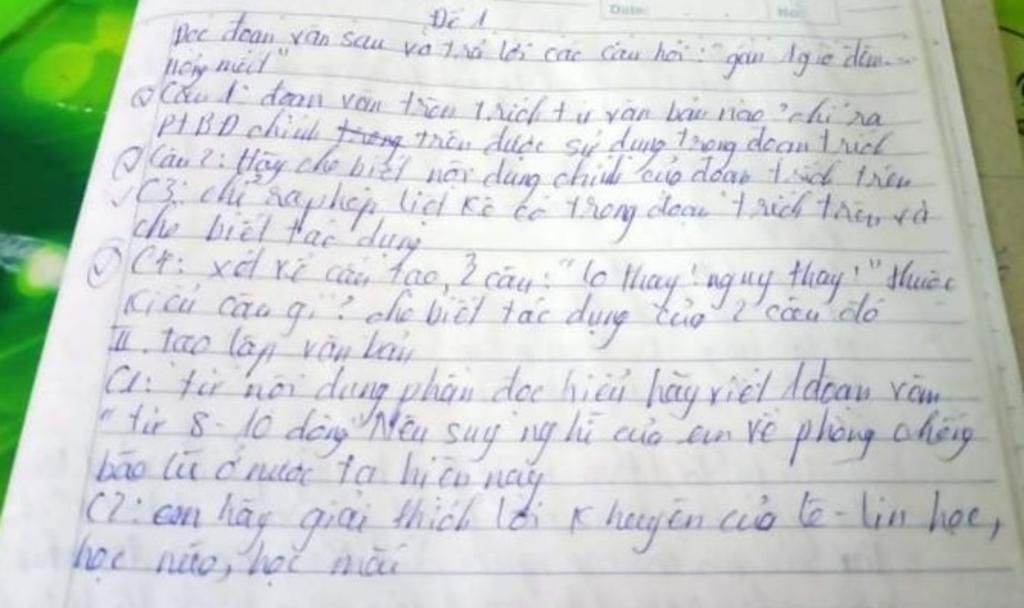 Đề 1
Đọc đoạn văn sau và trả lời các câu hỏi: "gần 1 giờ đêm....
hỏng mất"
Câu 1: đoạn văn trên trích từ văn bản nào? chỉ ra
PTBĐ chính trong trên được sử dụng trong đoạn trích
Câu 2: Hãy cho biết nội dung chính của đoạn trích trên
C3: chỉ ra phép liệt kê có trong đoạn trích trên và
cho biết tác dụng
C4: xét về cấu tạo, 2 câu: "lo thay! nguy thay!" thuộc
kiểu câu gì? cho biết tác dụng của 2 câu đó
II. tạo lập văn bản
C1: từ nội dung phần đọc hiểu hãy viết 1 đoạn văn
"từ 8-10 dòng" Nêu suy nghĩ của em về phòng chống
bão lũ ở nước ta hiện nay
C2: em hãy giải thích lời khuyên của Lê-lin học,
học nữa, học mãi